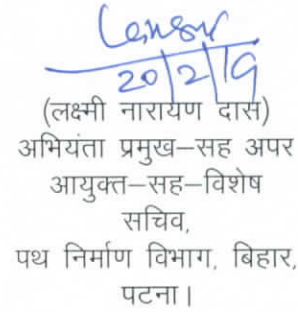 20/2/19
(लक्ष्मी नारायण दास)
अभियंता प्रमुख–सह अपर
आयुक्त–सह–विशेष
सचिव,
पथ निर्माण विभाग, बिहार,
पटना।